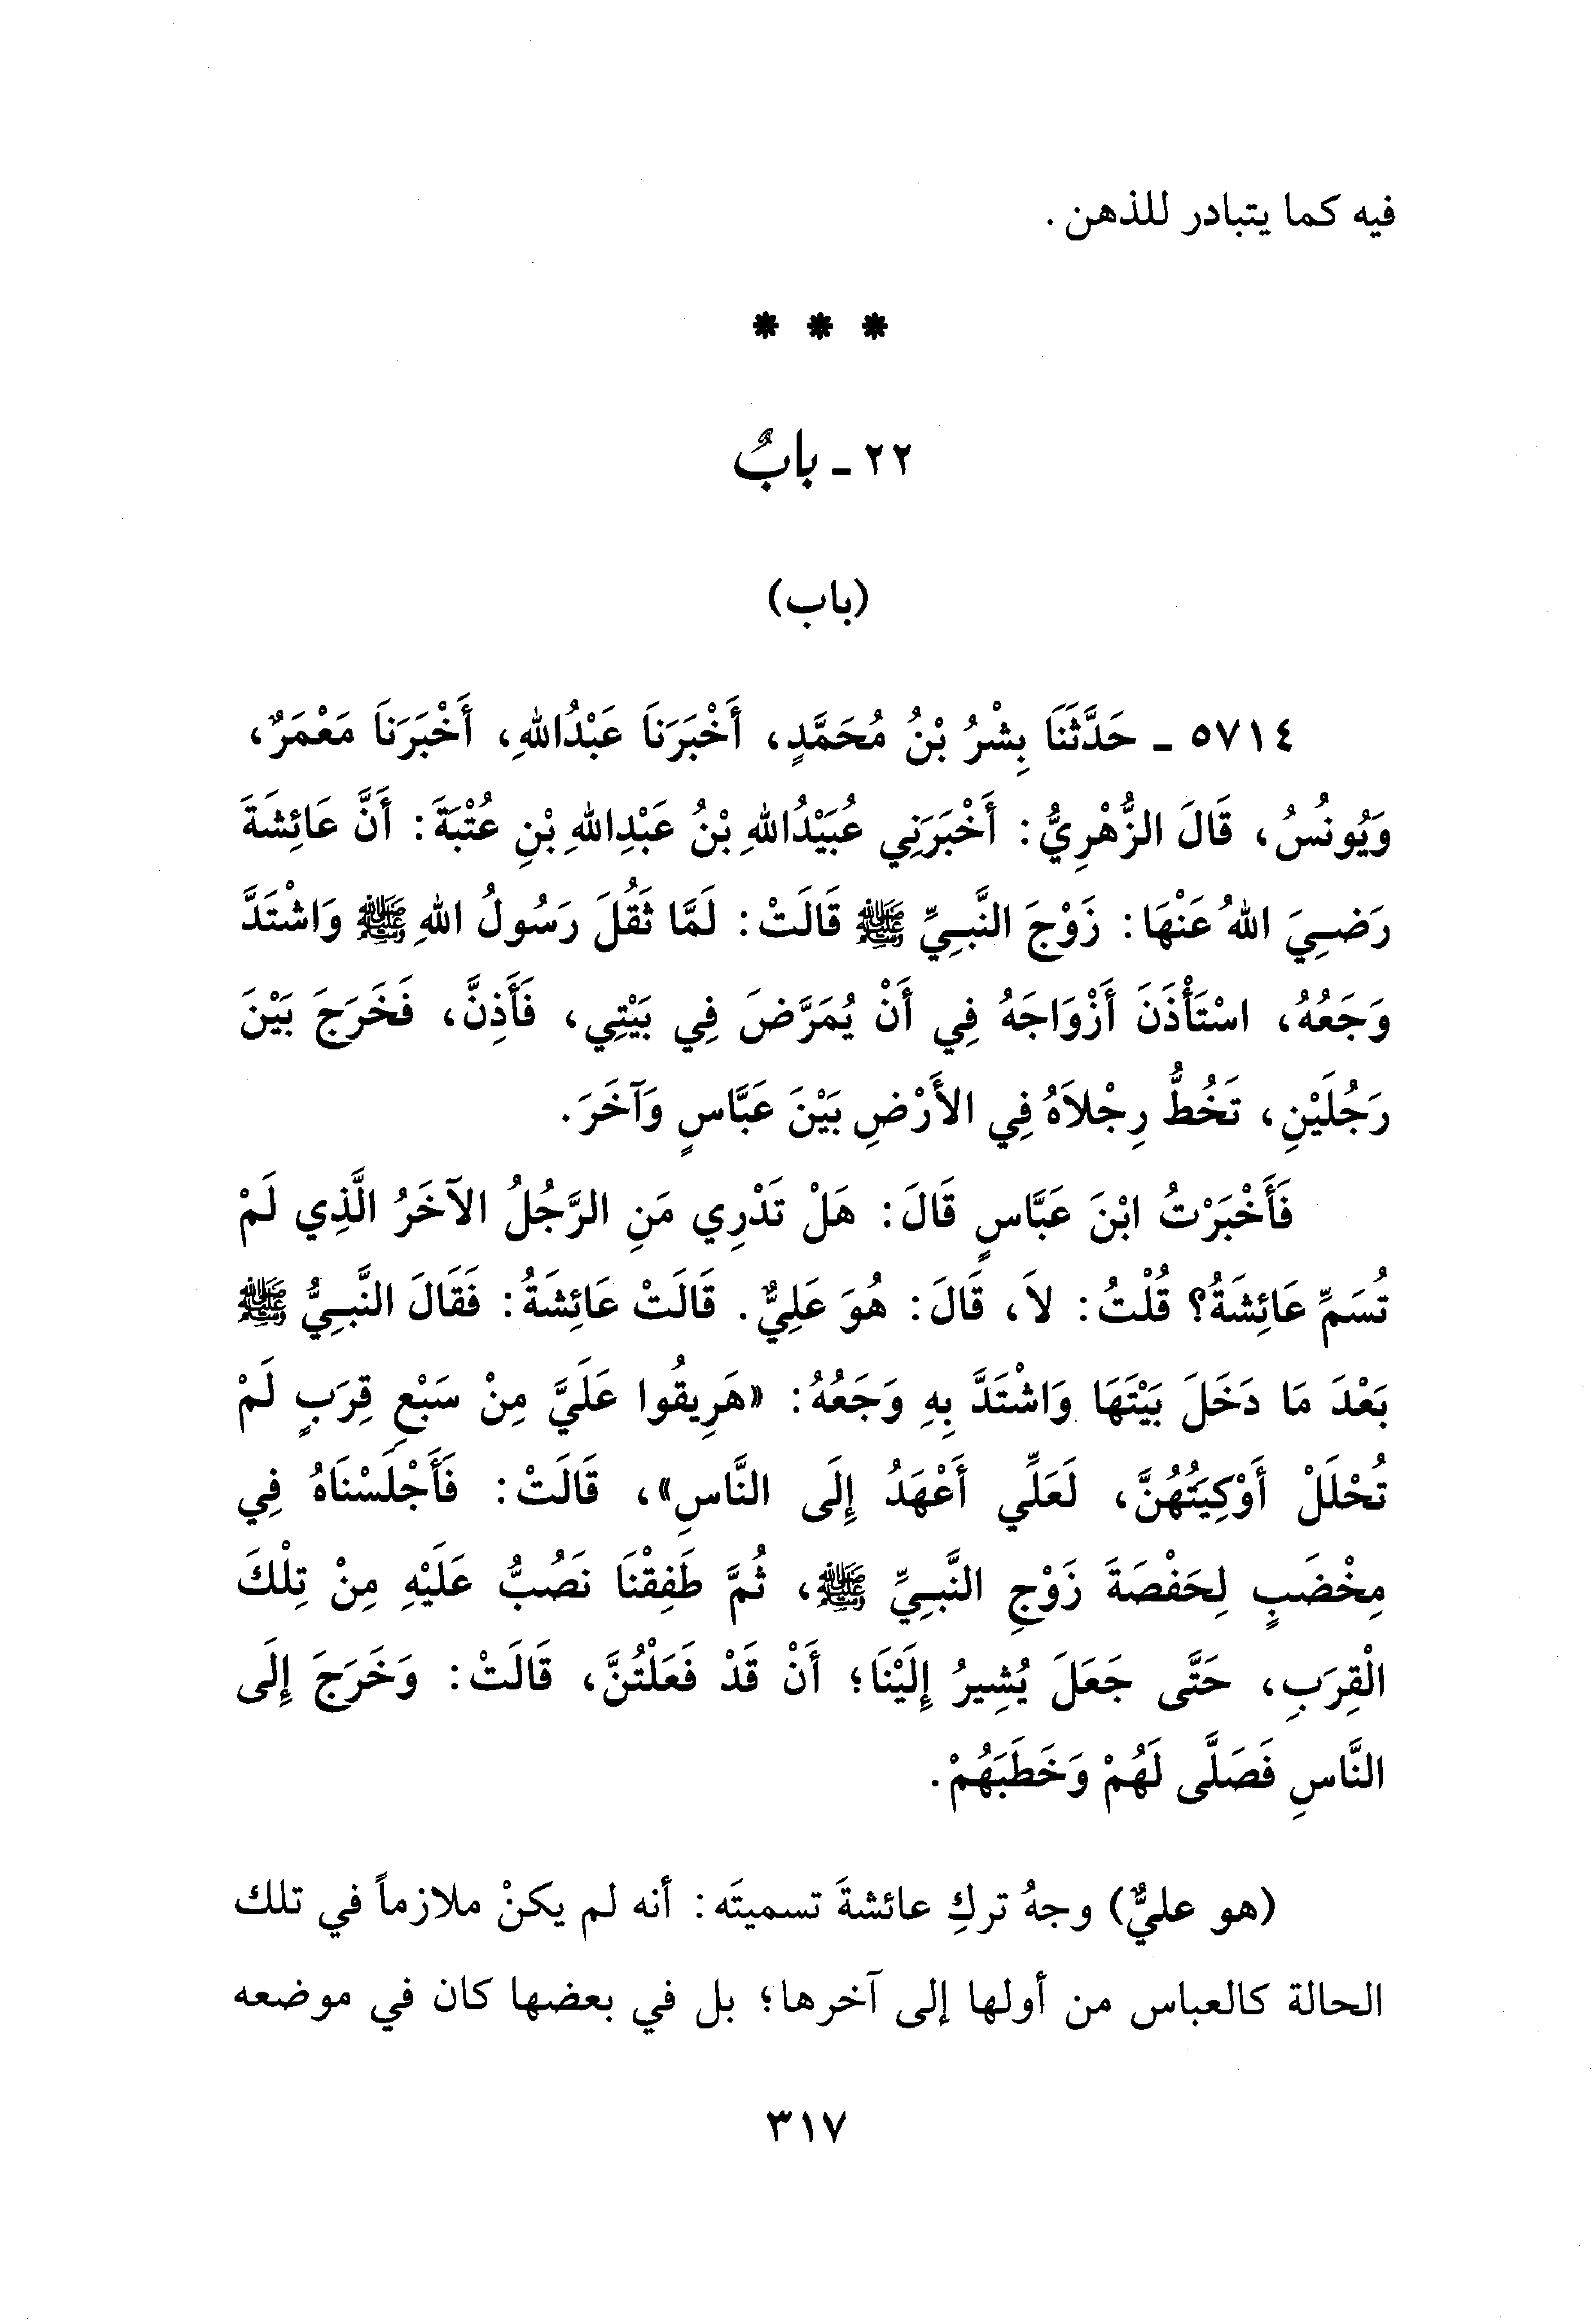 فيه كما يتبادر للذهن .
* * *
٢٢ - بابٌ
(باب)
٥٧١٤ - حَدَّثَنَا بِشْرُ بْنُ مُحَمَّدٍ، أَخْبَرَنَا عَبْدُاللهِ، أَخْبَرَنَا مَعْمَرٌ،
وَيُونُسُ، قَالَ الزُّهْرِيُّ: أَخْبَرَنِي عُبَيْدُاللهِ بْنُ عَبْدِاللهِ بْنِ عُتْبَةَ: أَنَّ عَائِشَةَ
رَضِيَ اللهُ عَنْهَا: زَوْجَ النَّبِيِّ ﷺ قَالَتْ: لَمَّا ثَقُلَ رَسُولُ اللهِ ﷺ وَاشْتَدَّ
وَجَعُهُ، اسْتَأْذَنَ أَزْوَاجَهُ فِي أَنْ يُمَرَّضَ فِي بَيْتِي، فَأَذِنَّ، فَخَرَجَ بَيْنَ
رَجُلَيْنِ، تَخُطُّ رِجْلاَهُ فِي الأَرْضِ بَيْنَ عَبَّاسٍ وَآخَرَ.
فَأَخْبَرْتُ ابْنَ عَبَّاسٍ قَالَ: هَلْ تَدْرِي مَنِ الرَّجُلُ الآخَرُ الَّذِي لَمْ
تُسَمِّ عَائِشَةُ؟ قُلْتُ: لاَ، قَالَ: هُوَ عَلِيٌّ. قَالَتْ عَائِشَةُ: فَقَالَ النَّبِيُّ ﷺ
بَعْدَ مَا دَخَلَ بَيْتَهَا وَاشْتَدَّ بِهِ وَجَعُهُ: «هَرِيقُوا عَلَيَّ مِنْ سَبْعِ قِرَبٍ لَمْ
تُحْلَلْ أَوْكِيَتُهُنَّ، لَعَلِّي أَعْهَدُ إِلَى النَّاسِ»، قَالَتْ: فَأَجْلَسْنَاهُ فِي
مِخْضَبٍ لِحَفْصَةَ زَوْجِ النَّبِيِّ ﷺ، ثُمَّ طَفِقْنَا نَصُبُّ عَلَيْهِ مِنْ تِلْكَ
الْقِرَبِ، حَتَّى جَعَلَ يُشِيرُ إِلَيْنَا؛ أَنْ قَدْ فَعَلْتُنَّ، قَالَتْ: وَخَرَجَ إِلَى
النَّاسِ فَصَلَّى لَهُمْ وَخَطَبَهُمْ.
(هو عليٌّ) وجهُ تركِ عائشةَ تسميتَه: أنه لم يكنْ ملازماً في تلك
الحالة كالعباس من أولها إلى آخرها؛ بل في بعضها كان في موضعه
٣١٧